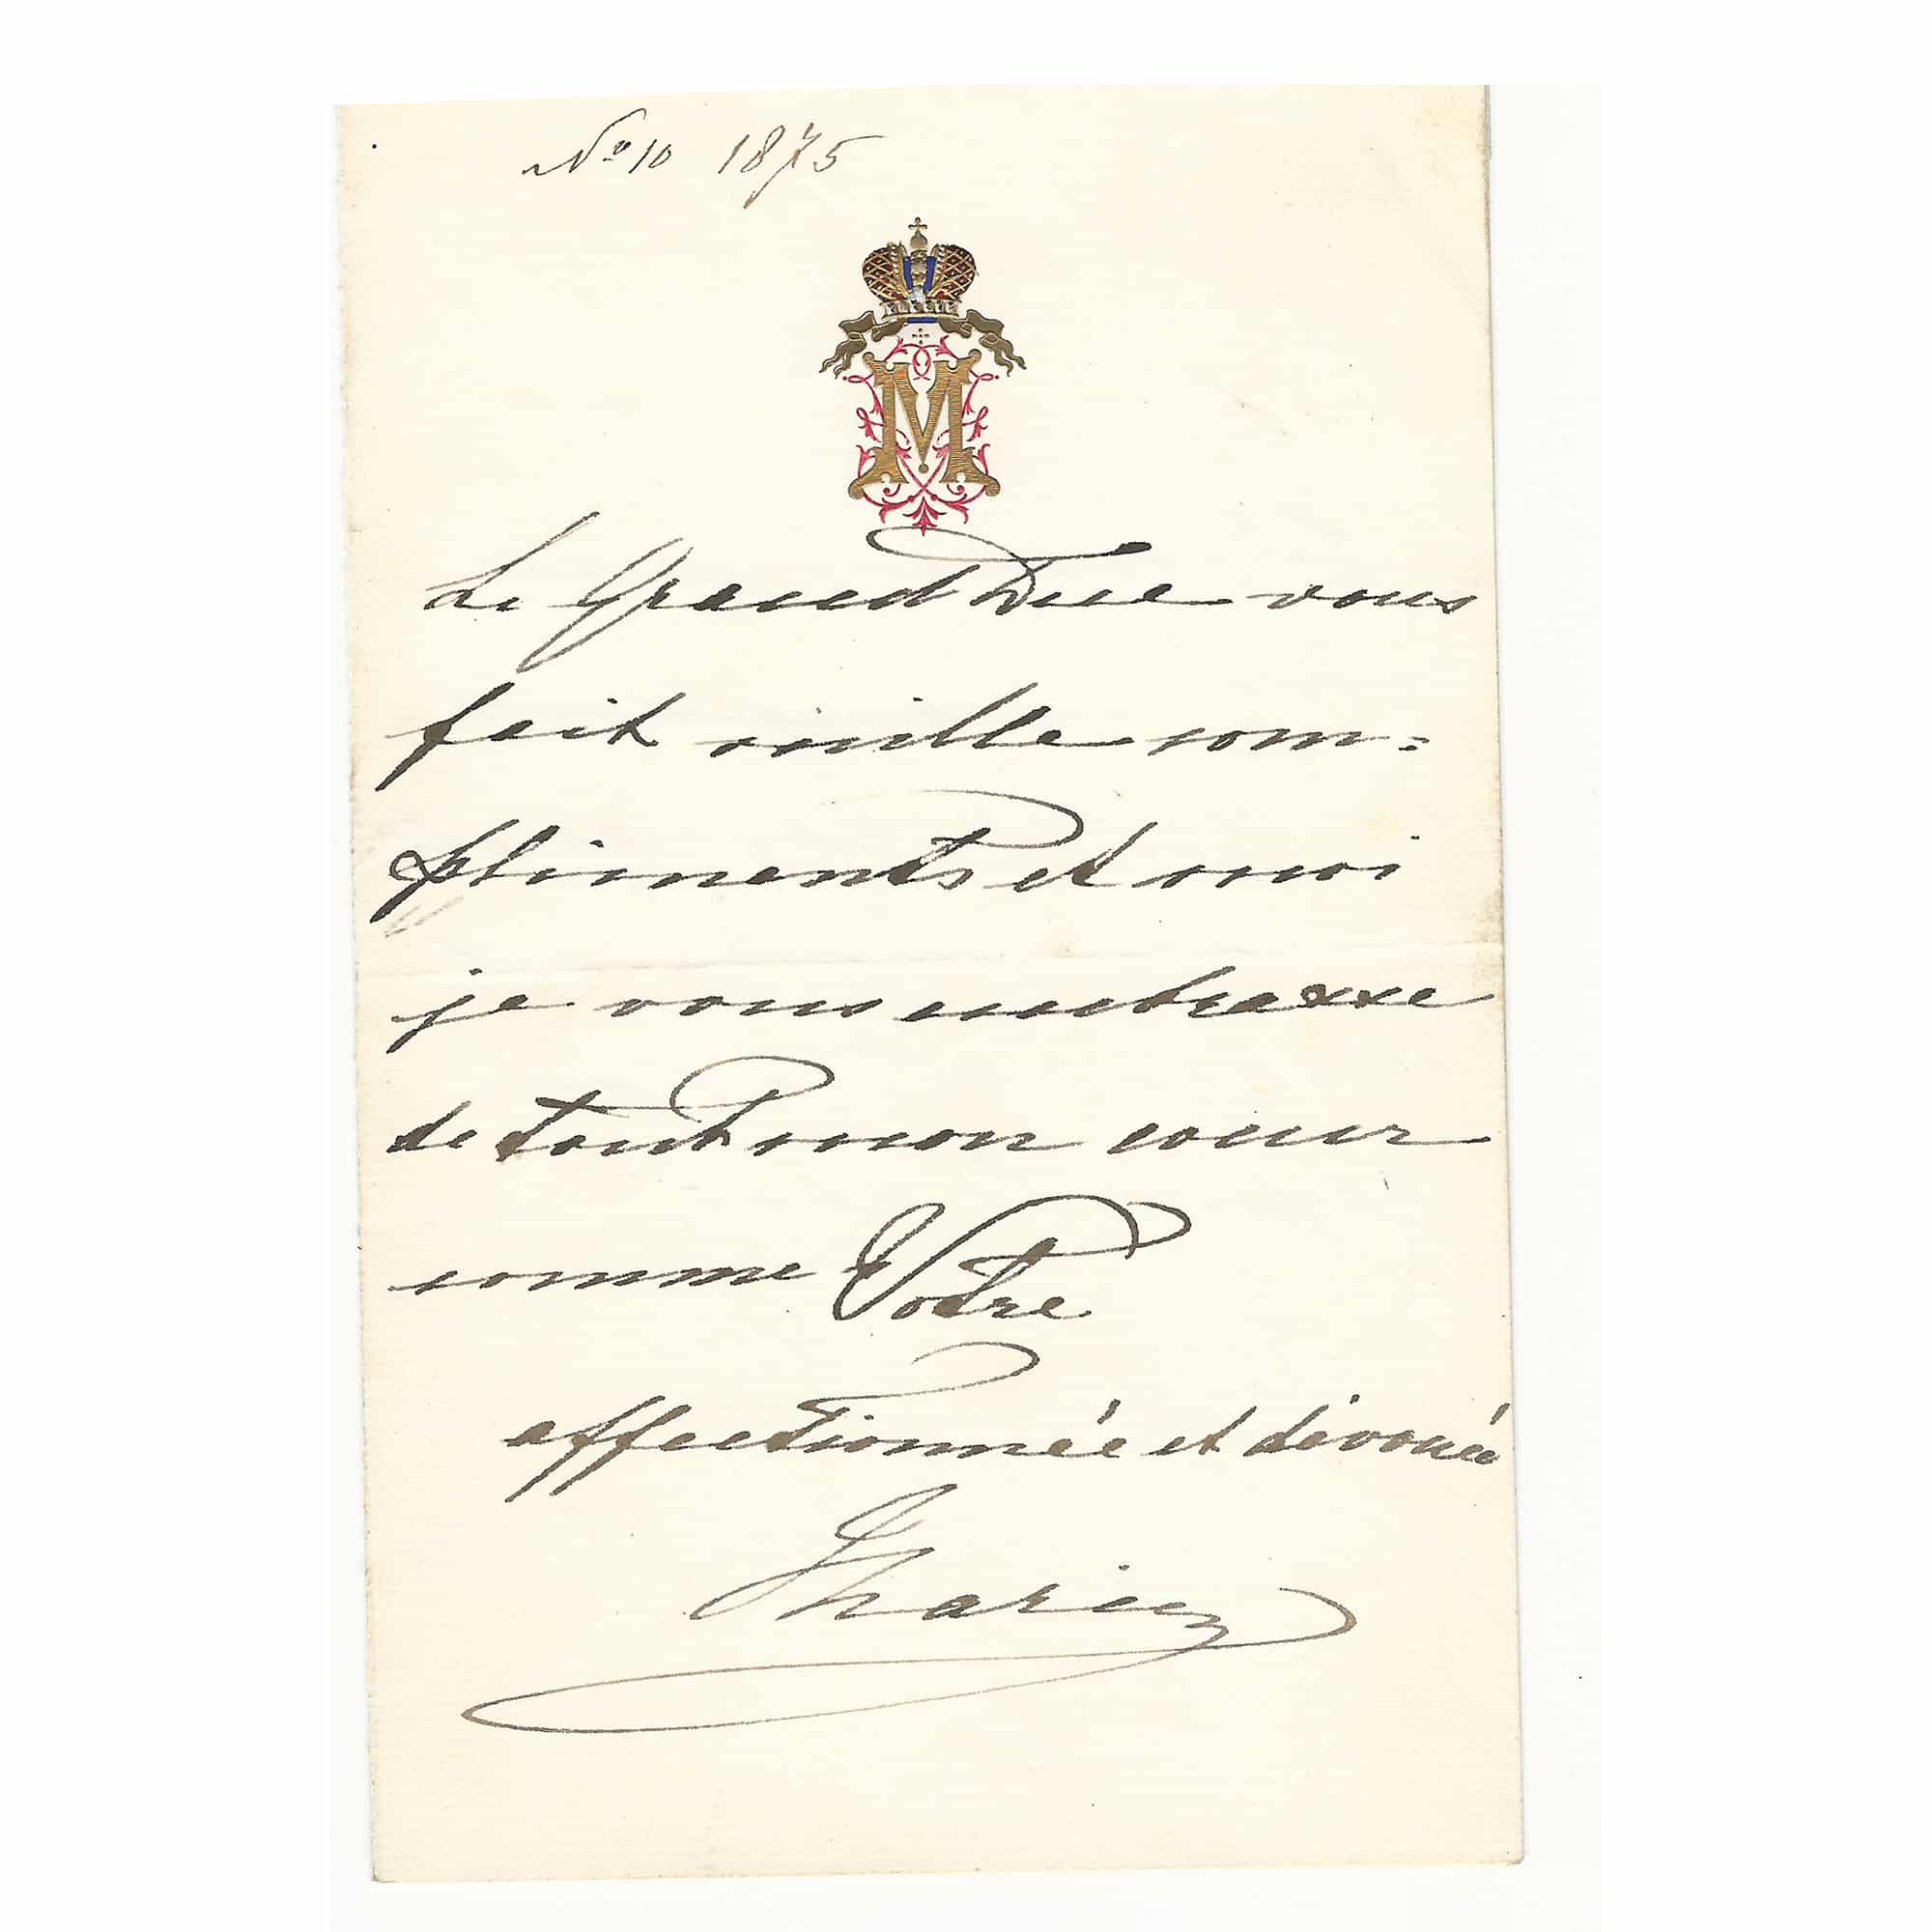 No 10 1875
M
Le Grand Duc vous
fait mille com=
pliments et moi
je vous embrasse
de tout mon coeur
comme Votre
affectionnée et dévouée
Marie